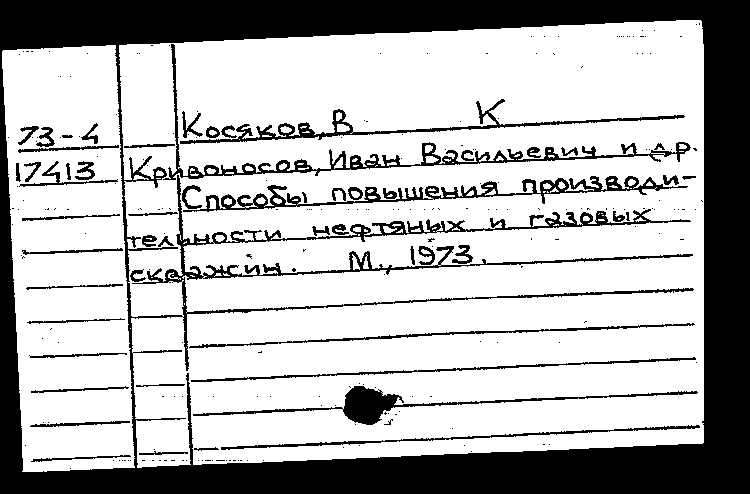 73-4 Косяков, В К
17413 Кривоносов, Иван Васильевич и др.
Способы повышения производи-
тельности нефтяных и газовых
скважин. М., 1973.